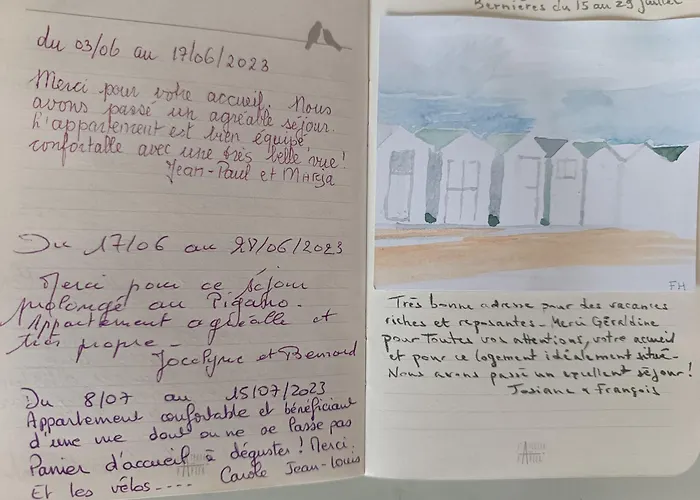 du 03/06 au 17/06/2023
Merci pour votre accueil. Nous
avons passé un agréable séjour.
L'appartement est bien équipé,
confortable avec une très belle vue!
Jean-Paul et Mareja
Du 17/06 au 28/06/2023
Merci pour ce séjour
prolongé au Pigano.
Appartement agréable et
très propre -
Jocelyne et Bernard
Du 8/07 au 15/07/2023
Appartement confortable et bénéficiant
d'une vue dont on ne se lasse pas
Panier d'accueil à déguster! Merci.
Et les vélos....
Carole Jean-Louis
Bernières du 15 au 29 juillet
FH
Très bonne adresse pour des vacances
riches et reposantes - Merci Géraldine
pour toutes vos attentions, votre accueil
et pour ce logement idéalement situé -
Nous avons passé un excellent séjour!
Josiane & François